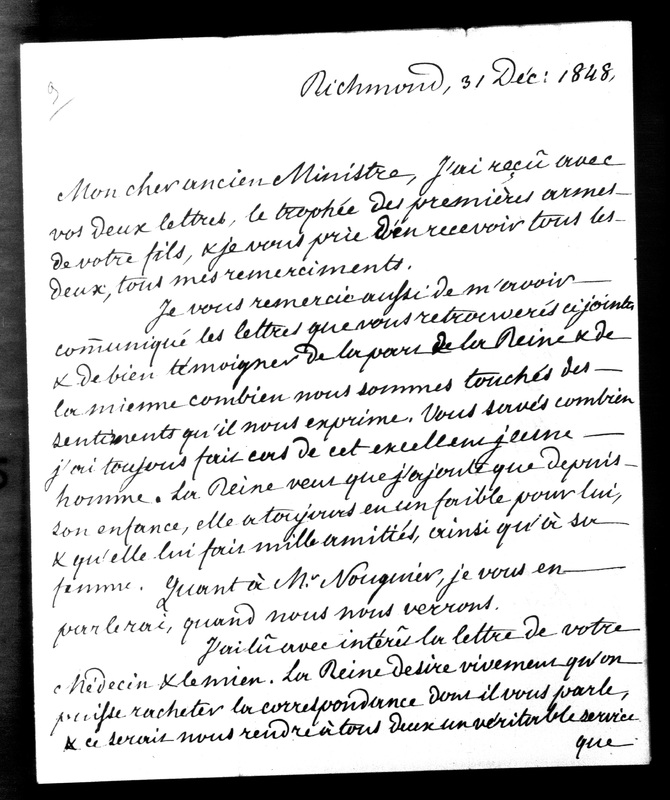 9
Richmond, 31 Déc: 1848,
Mon cher ancien Ministre, J'ai reçû avec
vos deux lettres, le trophée des premières armes
de votre fils, & je vous prie d'en recevoir tous les
deux, tous mes remerciments.
Je vous remercie aussi de m'avoir
com̄uniqué les lettres que vous retrouverés ci jointes
& de bien témoigner de la part de la Reine & de
la mienne combien nous sommes touchés des
sentiments qu'il nous exprime. Vous savés combien
j'ai toujours fait cas de cet excellent jeune
homme. La Reine veut que j'ajoute que depuis
son enfance, elle a toujours eu un faible pour lui,
& qu'elle lui fait mille amitiés, ainsi qu'à sa
femme. Quant à Mr. Nouguier, je vous en
parlerai, quand nous nous verrons.
J'ai lû avec intérêt la lettre de votre
Médecin & le mien. La Reine desire vivement qu'on
puisse racheter la correspondance dont il vous parle,
& ce serait nous rendre à tous deux un véritable service
que